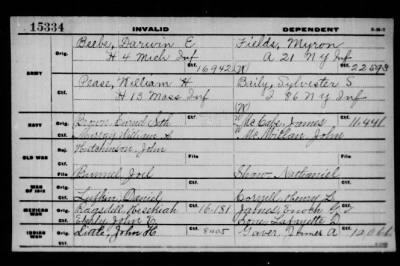 15334 INVALID DEPENDENT
Beebe, Darwin E. Fields, Myron
ARMY Orig. H 4 Mich Inf Orig. A 21 N Y Inf
16942 22593
Pease, William H. Baily, Sylvester S
Ctf. H 13 Mass Inf Ctf. I 86 N Y Inf
NAVY Orig. Brown Seth Orig. McCabe, James Ctf. 11441
Ctf. Murray William A. McMillan John
OLD WAR Hutchinson, John
File File
Bunnel, Joel Shaw Nathaniel
WAR OF 1812 Orig. Lufkin, Daniel Cornell Henry L.
MEXICAN WAR Orig. Ragsdill Hezekiah Ctf. 16-181 Orig. James, Enoch G
Ctf. John C. Ctf. Love Lafayette D
INDIAN WAR Orig. John H. Ctf. 8405 Orig. Gaver, Homer A